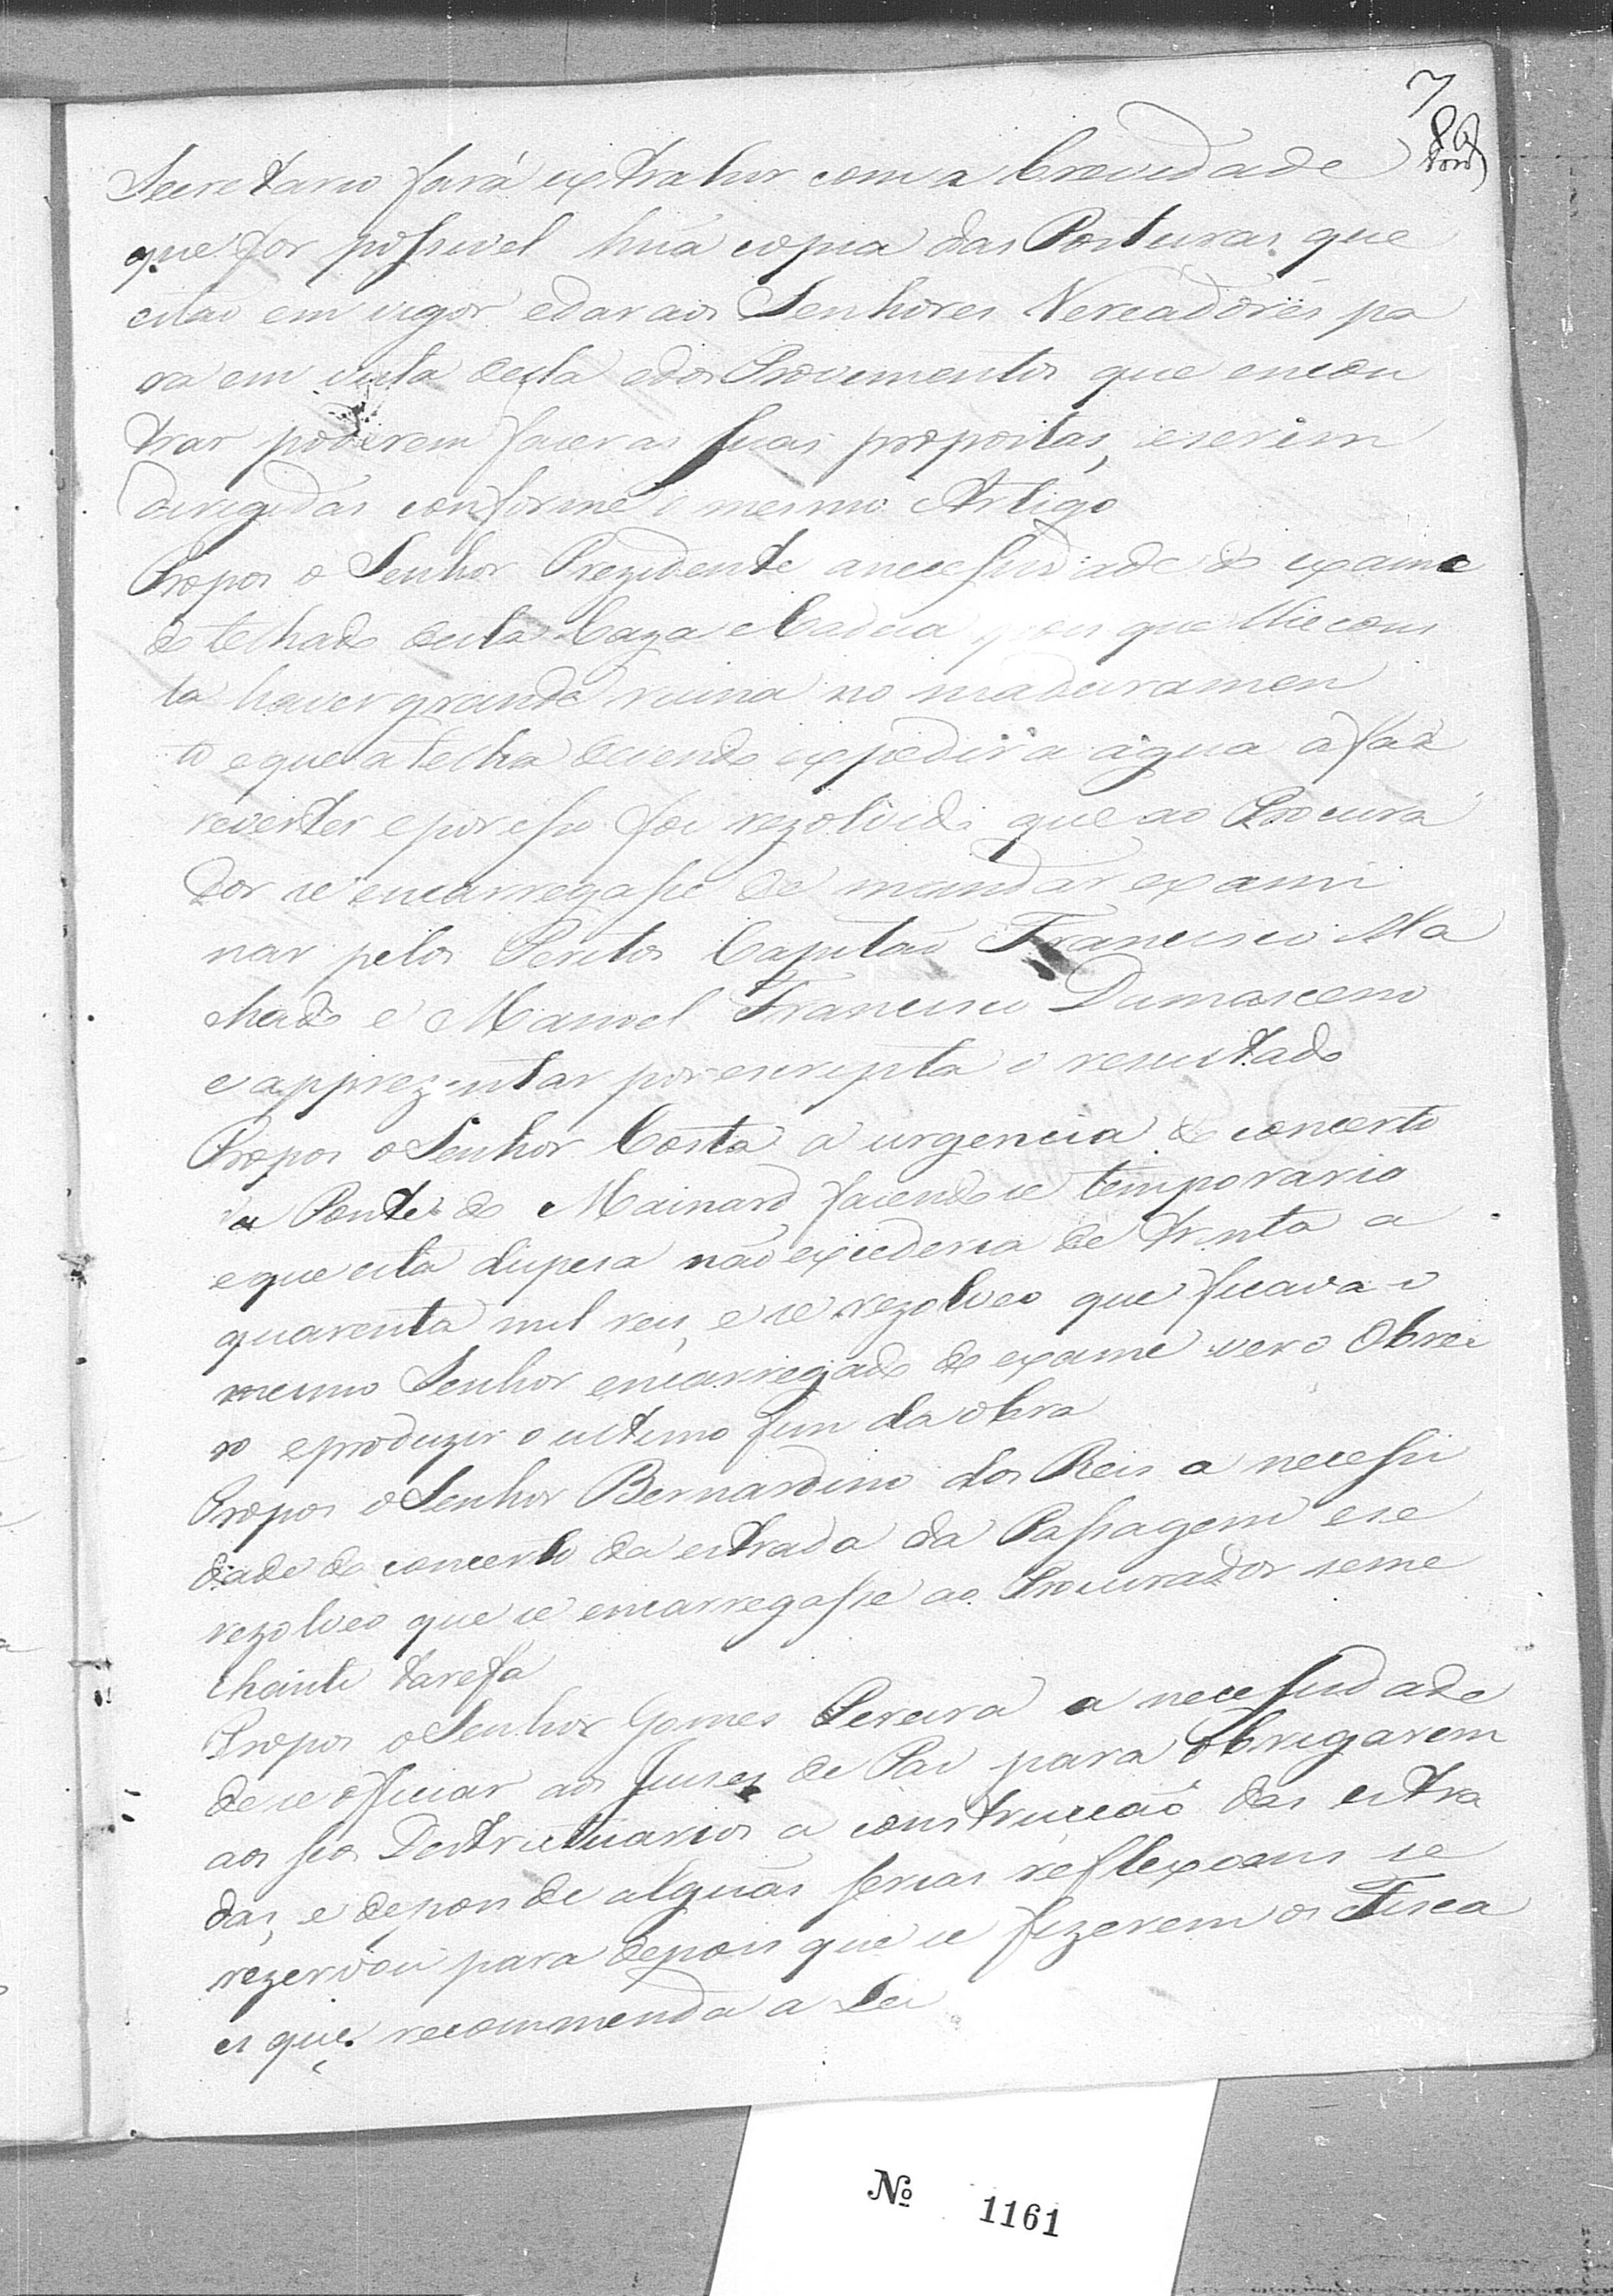 7
Secretario fará extrahir com a brevidade
que for possivel huã copia das Posturas que
estão em vigor e dar aos Senhores Vereadores pa
ra em vista desta e dos Provimentos que encon
trar poderem facer as suas propostas, e serem
derigidas conforme o mesmo Artigo
Propos o Senhor Prezidente a necessidade do exame
do telhado desta Caza e Cadeia pois que lhe cons
ta haver grande ruina no madeiramen
to e que a telha devendo expedir a agua a faz
reverter e por isso foi rezolvido que ao Procura
dor se encarregasse de mandar exami
nar pelos Peritos Capitão Francisco Ma
chado e Manoel Francisco Damasceno
e apprezentar por escripta o resultado
Propos o Senhor Costa a urgencia do concerto
da Ponte do Mainard facendo se temporario
e que esta dispesa não excederia de trinta a
quarenta mil reis, e se rezolveo que ficava o
mesmo Senhor encarregado do exame ver o Obrei
ro e produzir o ultimo fim da obra
Propos o Senhor Bernardino dos Reis a necessi
dade do concerto da estrada da Passagem e se
rezolveo que se encarregasse ao Procurador seme
lhante tarefa
Propos o Senhor Gomes Pereira a necessidade
de se officiar aos Juises de Pas para obrigarem
aos seos Destrictuarios a construcção das estra
das, e depois de alguãs serias reflexoens se
rezervou para depois que se fizerem os Fisca
es que recommenda a Lei
Nº 1161